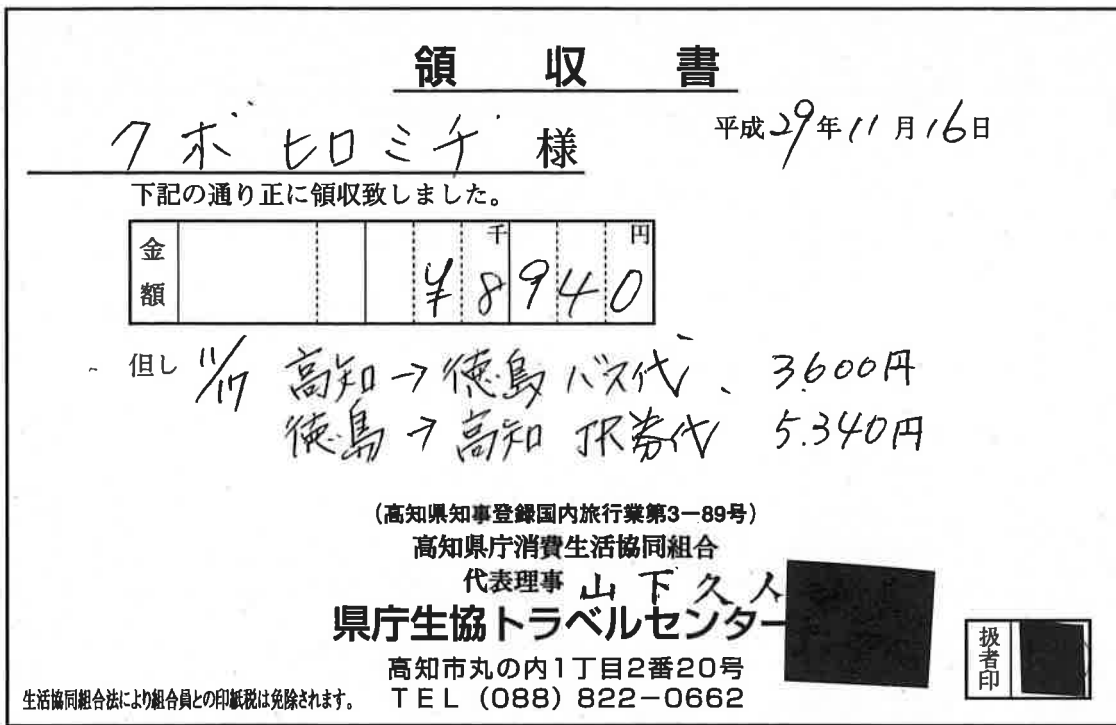 領収書
クボ ヒロミチ 様
平成29年11月16日
下記の通り正に領収致しました。
金額 千 円
¥8940
但し 11/17 高知→徳島 バス代、 3.600円
徳島→高知 JR券代 5.340円
(高知県知事登録国内旅行業第3ー89号)
高知県庁消費生活協同組合
代表理事 山下久人
県庁生協トラベルセンター
高知市丸の内1丁目2番20号
生活協同組合法により組合員との印紙税は免除されます。 TEL (088) 822ー0662
扱者印